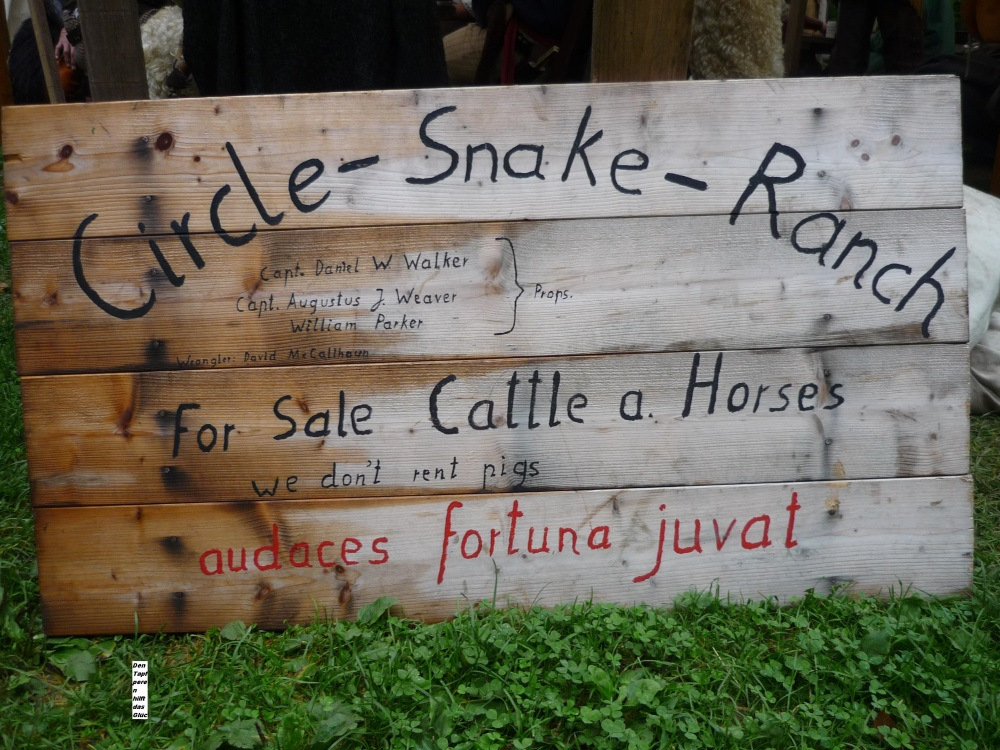 Circle-Snake-Ranch
Capt. Daniel W. Walker
Capt. Augustus J. Weaver
William Parker
} Props.
Wrangler: David McCallhaun
For Sale Cattle a. Horses
we don't rent pigs
audaces fortuna juvat
Den
Tapf
peren
hilft
das
Glüc